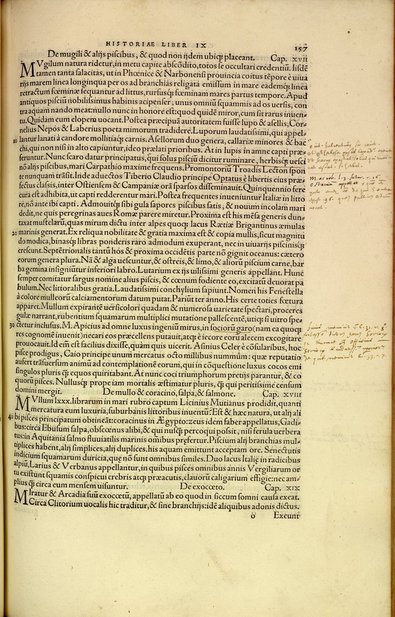 HISTORIAE LIBER IX. 197
De mugili & alijs piscibus, & quod non ijdem ubiq; placeant. Cap. XVII
MVgilum natura ridetur, in metu capite abscōdito, totos se occultari credentiū. Iisdē
tamen tanta salacitas, ut in Phœnice & Narbonensi prouincia coitus tēpore è uiua
rijs marem linea longinqua per os ad branchias religata emissum in mare eademq; linea
retractum fœminæ sequantur ad littus, rursusq; fœminam mares partus tempore. Apud
antiquos pisciū nobilissimus habitus acipenser, unus omniū squammis ad os uersis, con
tra aquam nando meat: nullo nunc in honore est: quod quidē miror, cum sit rarus inuen-
tu. Quidam eum elopem uocant. Postea præcipuā autoritatem fuisse lupo & asellis, Cor-
nelius Nepos & Laberius poeta mimorum tradidere. Luporum laudatissimi, qui appel-
lantur lanati à candore mollitiaq; carnis. Asellorum duo genera, callariæ minores & bac
chi, qui non nisi in alto capiuntur, ideo prælati prioribus. At in lupis in amne capti præ
feruntur. Nunc scaro datur principatus, qui solus pisciū dicitur ruminare, herbisq; uesci
nō alijs piscibus, mari Carpathio maxime frequens. Promontoriū Troadis Lecton spon
te nunquam trāsit. Inde aduectos Tiberio Claudio principe Optatus è libertis eius præ
fectus classis, inter Ostiensem & Campaniæ orā sparsos disseminauit. Quinquennio fere
cura est adhibita, ut capti redderentur mari. Postea frequentes inueniuntur Italiæ in litto
re, nō ante ibi capti. Admouitq; sibi gula sapores piscibus satis, & nouum incolam mari
dedit, ne quis peregrinas aues Romæ parere miretur. Proxima est his mēsa generis dun
taxat mustelarū, quas mirum dictu inter alpes quoq; lacus Rætiæ Brigantinus æmulas
marinis generat. Ex reliqua nobilitate & gratia maxima est & copia mullis, sicut magnitu
do modica, binasq; libras ponderis raro admodum exuperant, nec in uiuarijs piscinisq;
crescunt. Septētrionalis tantū hos & proxima occidētis parte nō gignit oceanus. cætero
eorum genera plura. Nā & alga uescuntur, & ostreis, & limo, & aliorū pisciū carne, bar
ba gemina insigniuntur inferiori labro. Lutarium ex ijs uilissimi generis appellant. Hunc
semper comitatur sargus nomine alius piscis, & cœnum fodiente eo, excitatū deuorat pa
bulum. Nec littoralibus gratia. Laudatissimi conchylium sapiunt. Nomen his Fenestella
à colore mulleorū calciamentorum datum putat. Pariūt ter anno. His certe toties fœtura
apparet. Mullum expirantē uersicolori quadam & numerosa uarietate spectari, proceres
gulæ narrant, rubentium squamarum multiplici mutatione pallescentē, utiq; si uitro spec
tetur inclusum. M. Apicius ad omne luxus ingenium mirus, in sociorū garo (nam ea quoq;
res cognomē inuenit) necari eos præcellens putauit, atq; è iecore eorū alecem excogitare
prouocauit. Id enī est facilius dixisse, quàm quis uicerit. Asinius Celer è cōsularibus, hoc
pisce prodigus, Caio principe unum mercatus octo millibus nummūm: quæ reputatio
aufert trāsuersum animū ad contemplationē eorum, qui in cōquestione luxus cocos emi
singulos pluris q̄ equos quiritabant. At nunc coci triumphorum precijs parantur, & co
quorū pisces. Nullusq; prope iam mortalis æstimatur pluris, q̄ qui peritissime censum
domini mergit. De mullo & coracino, salpa, & salmone. Cap. XVIII
MVllum lxxx. librarum in mari rubro captum Licinius Mutianus prodidit, quanti
mercatura eum luxuria, suburbanis littoribus inuentū? Est & hæc natura, ut alij ali
bi pisces principatum obtineāt: coracinus in Ægypto: zeus idem faber appellatus, Gadi-
bus: circa Ebusum salpa, obscœnus alibi, & qui nusq̄ percoqui possit, nisi ferula uerbera
tus: in Aquitania salmo fluuiatilis marinis omnibus præfertur. Piscium alij branchias mul
tiplices habent, alij simplices, alij duplices. his aquam emittunt acceptam ore. Senectutis
indicium squamarum duricia, quæ nō sunt omnibus similes. Duo lacus Italiæ in radicibus
alpiū, Larius & Verbanus appellantur, in quibus pisces omnibus annis Vergiliarum or
tu existunt squamis conspicui crebris atq; præacutis, clauorū caligarium effigie: nec am-
plius q̄ circa eum mensem uisuntur. De exocœto. Cap. XIX
MIratur & Arcadia suū exocœtū, appellatū ab eo quod in siccum somni causa exeat.
Circa Clitorium uocalis hic traditur, & sine branchijs: idē aliquibus adonis dictus.
Exeunt